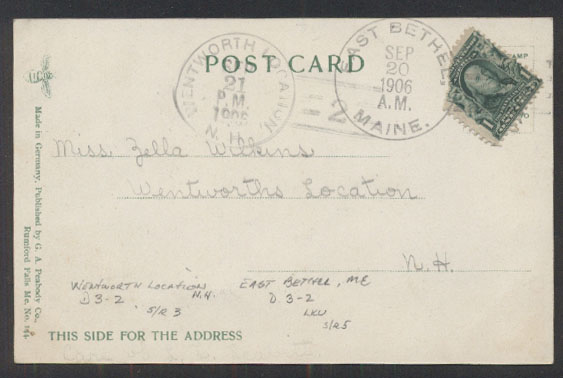 WENTWORTH LOCATION
21
P.M.
1906
N.H.
POST CARD
EAST BETHEL
SEP
20
1906
A.M.
MAINE.
2
Miss. Zella Wilkins
Wentworths Location
N.H.
Made in Germany, Published by G. A. Peabody Co.,
Rumford Falls Me. No. 194.
WENTWORTH LOCATION
N.H.
D 3-2
S/R 3
EAST BETHEL, ME
D 3-2
LKU
S/R5
THIS SIDE FOR THE ADDRESS